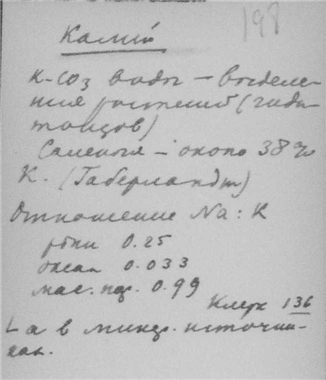 198
Калий
K-CO3 воды – выделе-
ния растений (гида-
тодов)
Саленья – около 38%
K. (Габерландт)
Отношение Na : K
реки 0.25
океан 0.033
мас. пр. 0.99
Кларк 136
в минер. источни-
ках.